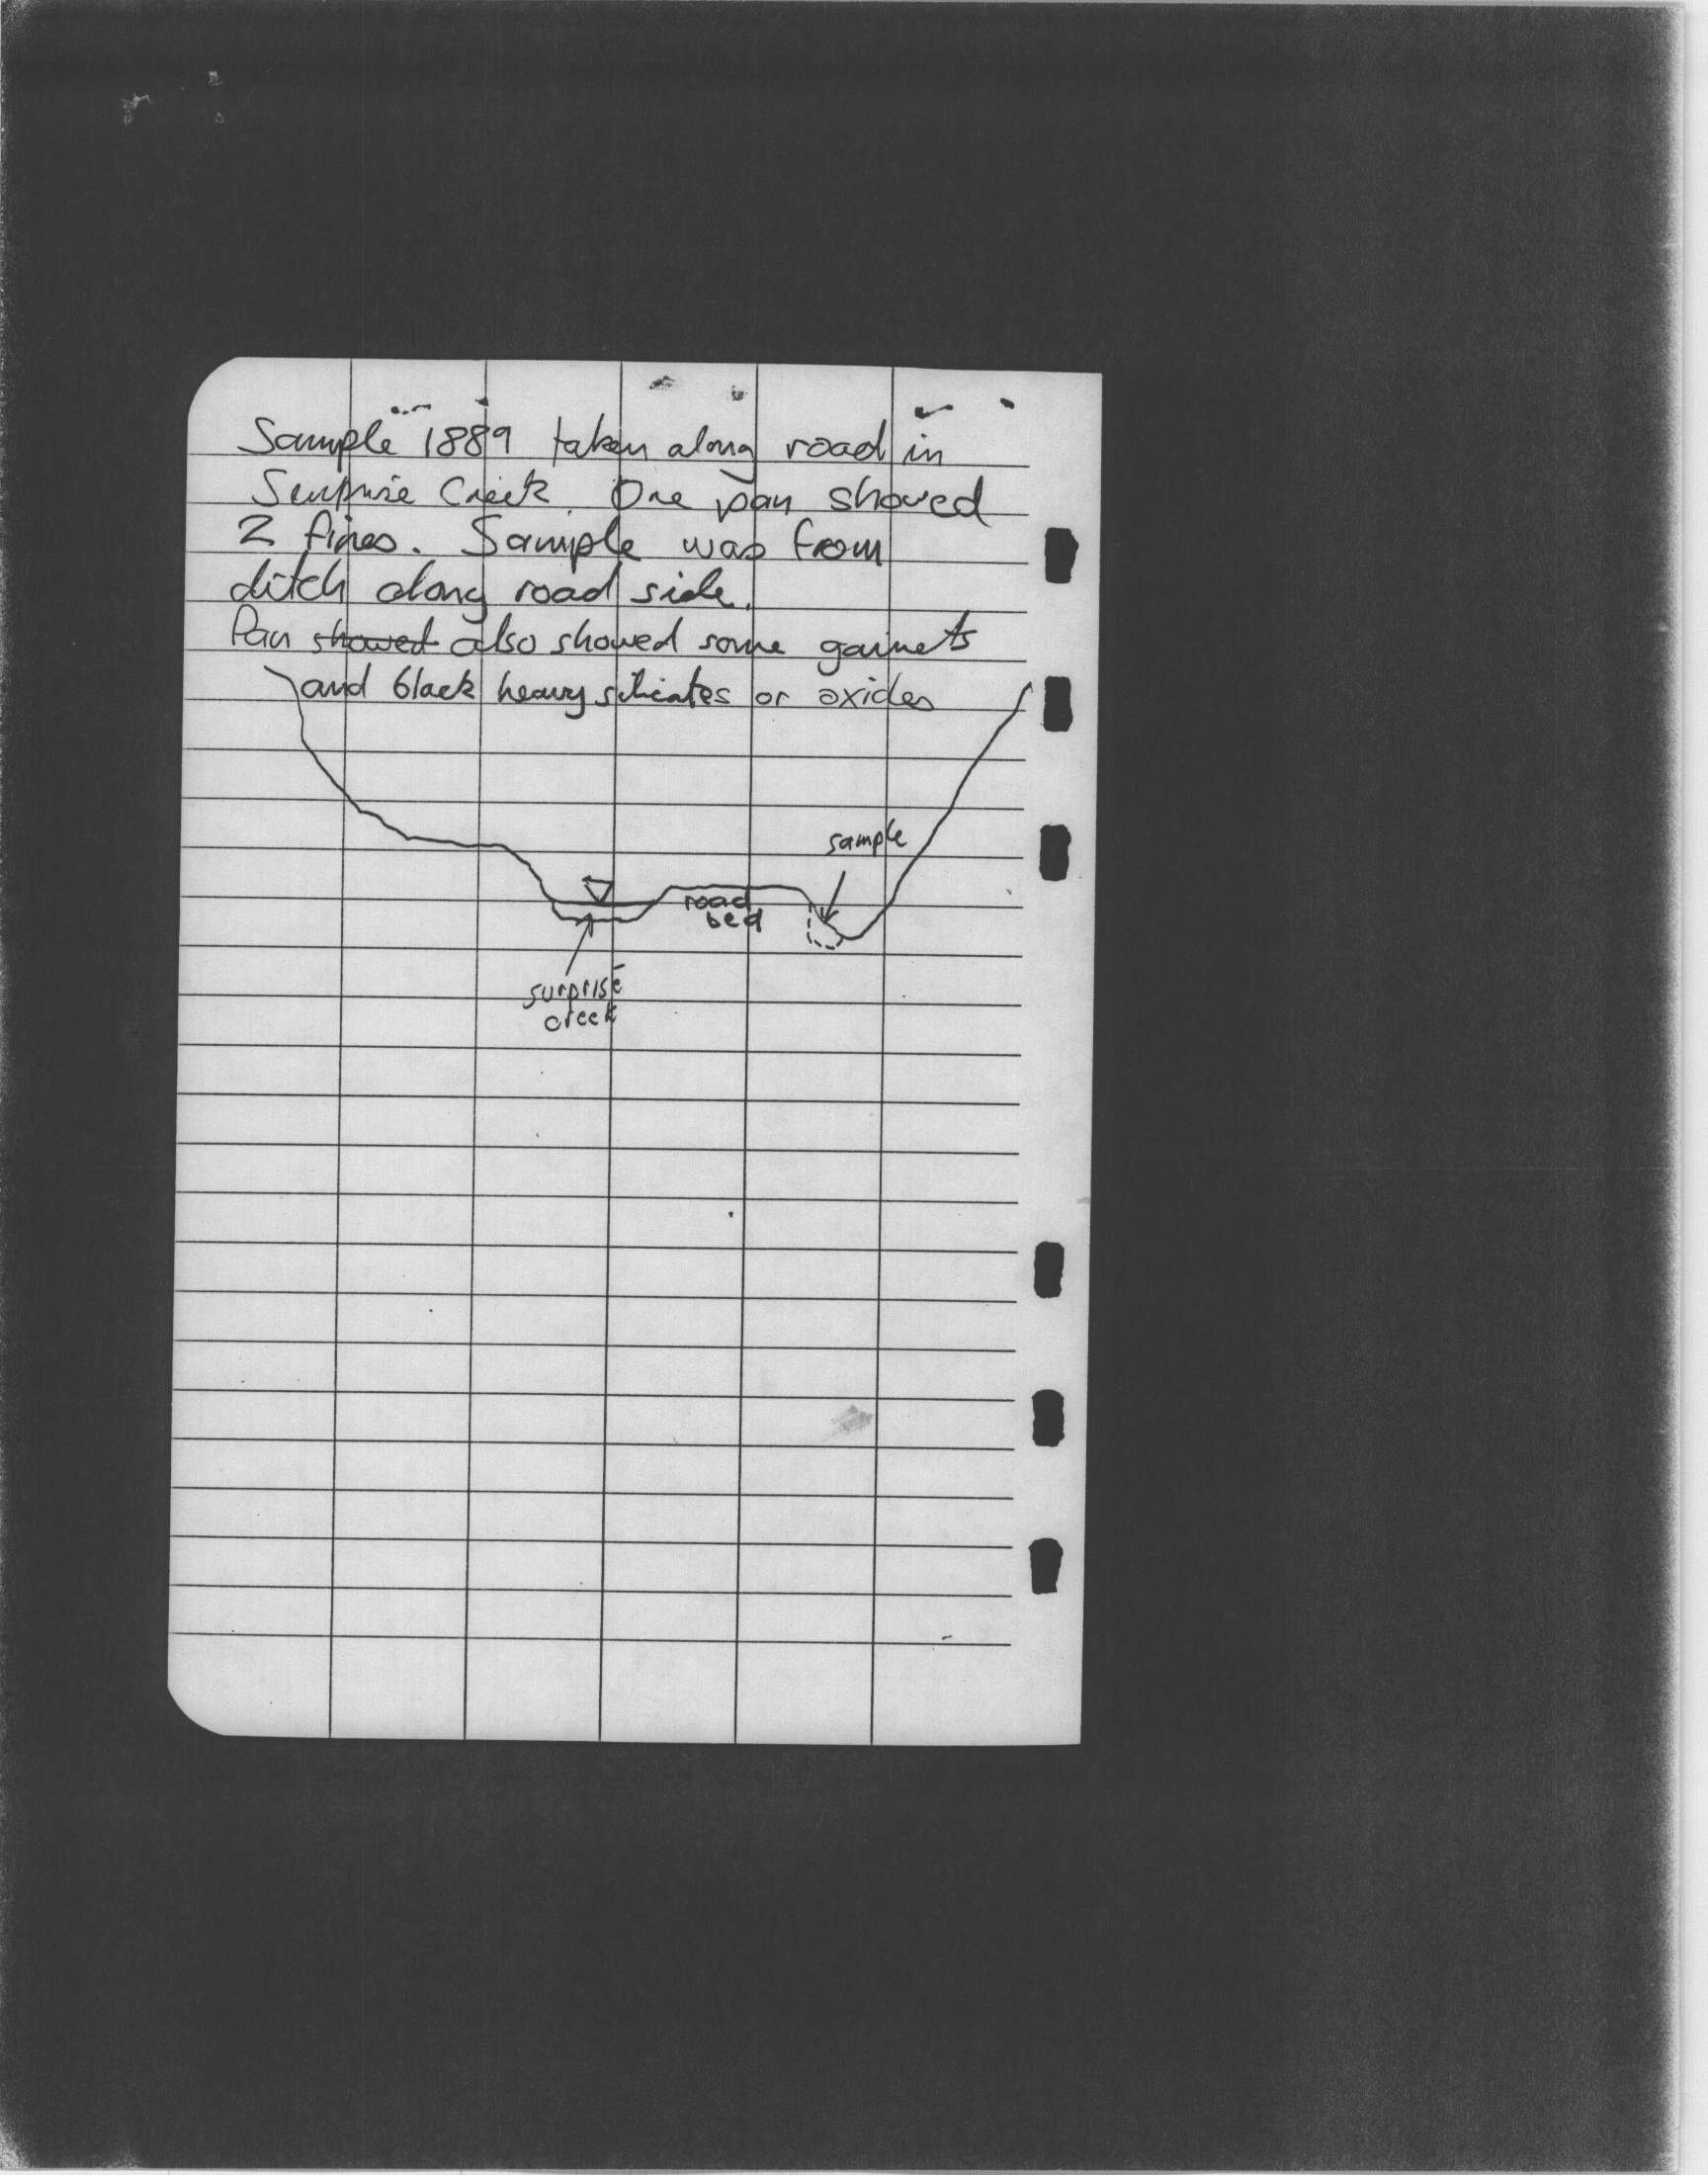 Sample 1889 taken along road in
Surprise Creek. One pan showed
2 fines. Sample was from
ditch along road side.
Pan showed also showed some garnets
and black heavy silicates or oxides
sample
road
bed
surprise
creek